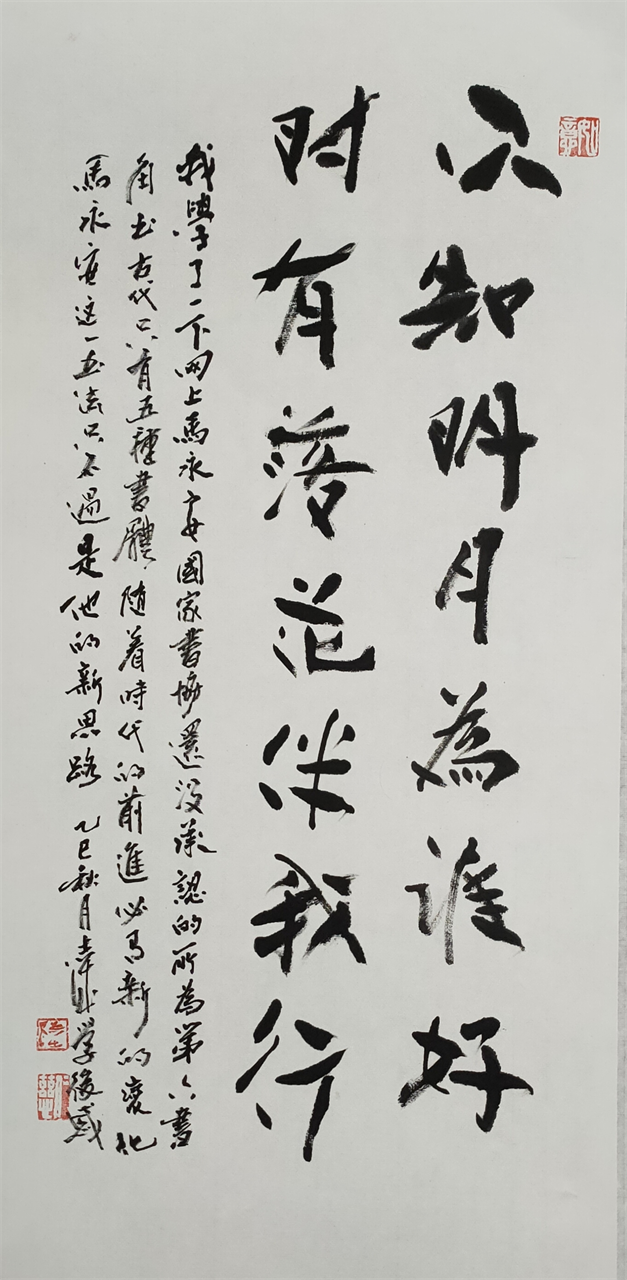 不知明月为谁好
时有落花伴我行
我學了一下网上馬永安國家書协還没承認的所為第六書
角度古代只有五種書體随着時代的前進必有新的变化
馬永安这一書法只不過是他的新思路 乙巳秋月 学後感